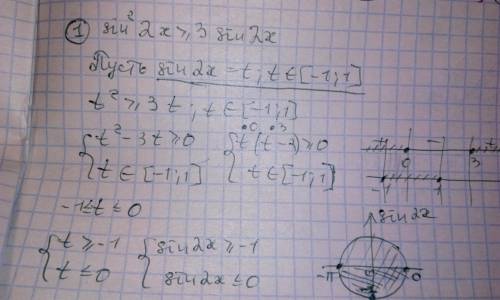 ① sin² 2x ≥ 3 sin 2x
Пусть sin 2x = t, t ∈ [-1; 1]
t² ≥ 3t ; t ∈ [-1; 1]
{ t² - 3t ≥ 0 { t(t - 3) ≥ 0
0 3
{ t ∈ [-1; 1] { t ∈ [-1; 1]
0 3
-1 1
-1 ≤ t ≤ 0
{ t ≥ -1 { sin 2x ≥ -1
{ t ≤ 0 { sin 2x ≤ 0
sin 2x
-π 0